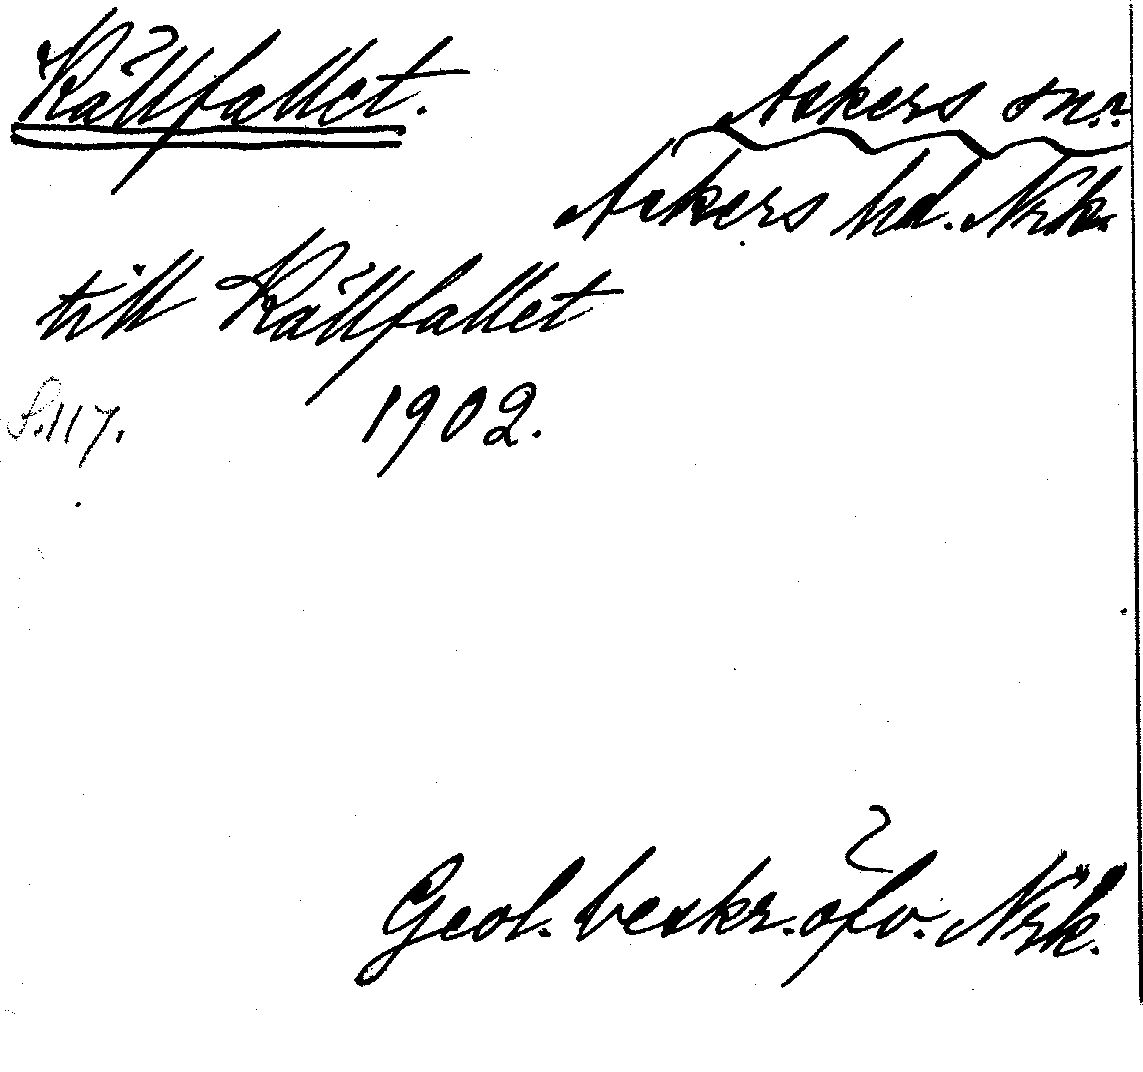 Källfallet.
Askers sn.
Askers hd. Nrk.
till Källfallet
S. 117. 1902.
Geol. beskr. öfv. Nrk.